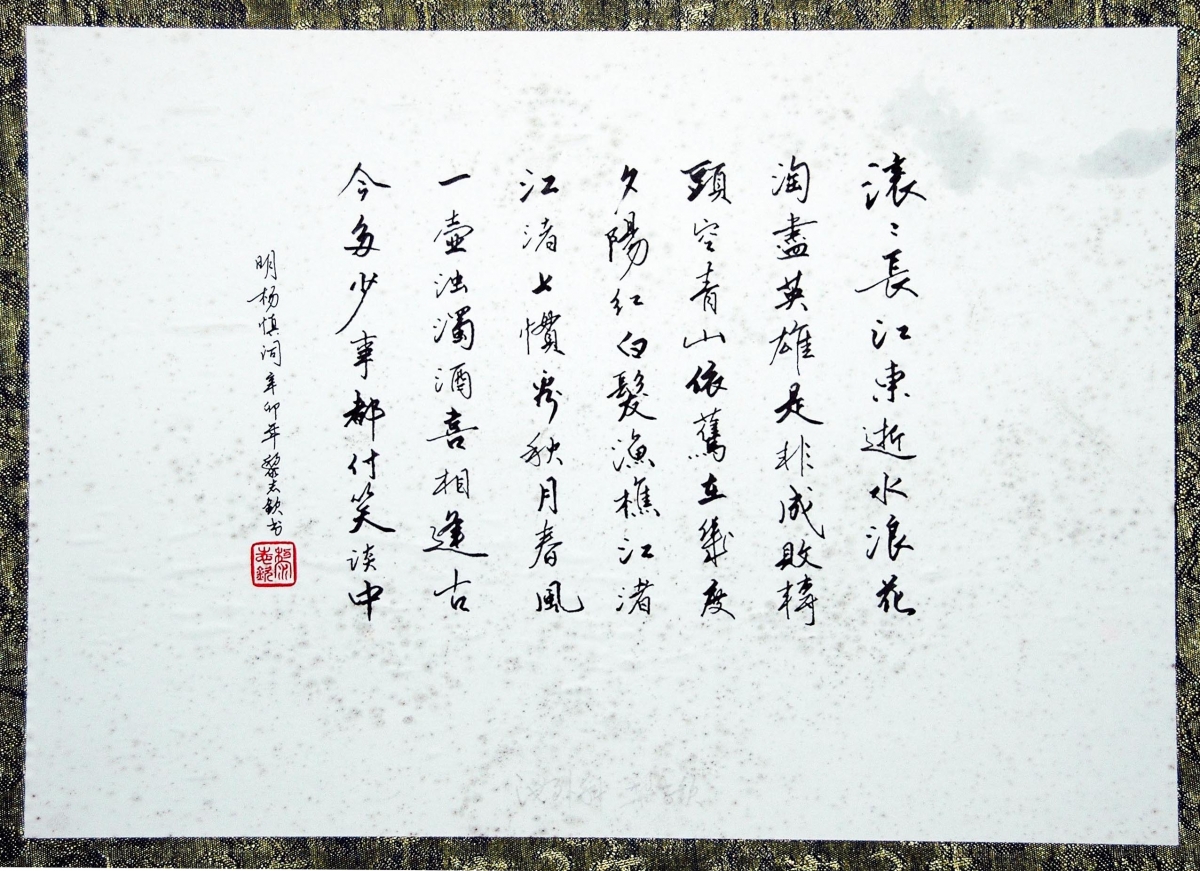 滚〻長江東逝水浪花
淘盡英雄是非成敗轉
頭空青山依舊在幾度
夕陽红白髮漁樵江渚
江渚上慣看秋月春風
一壺浊濁酒喜相逢古
今多少事都付笑谈中
明杨慎词辛卯年黎志钦书